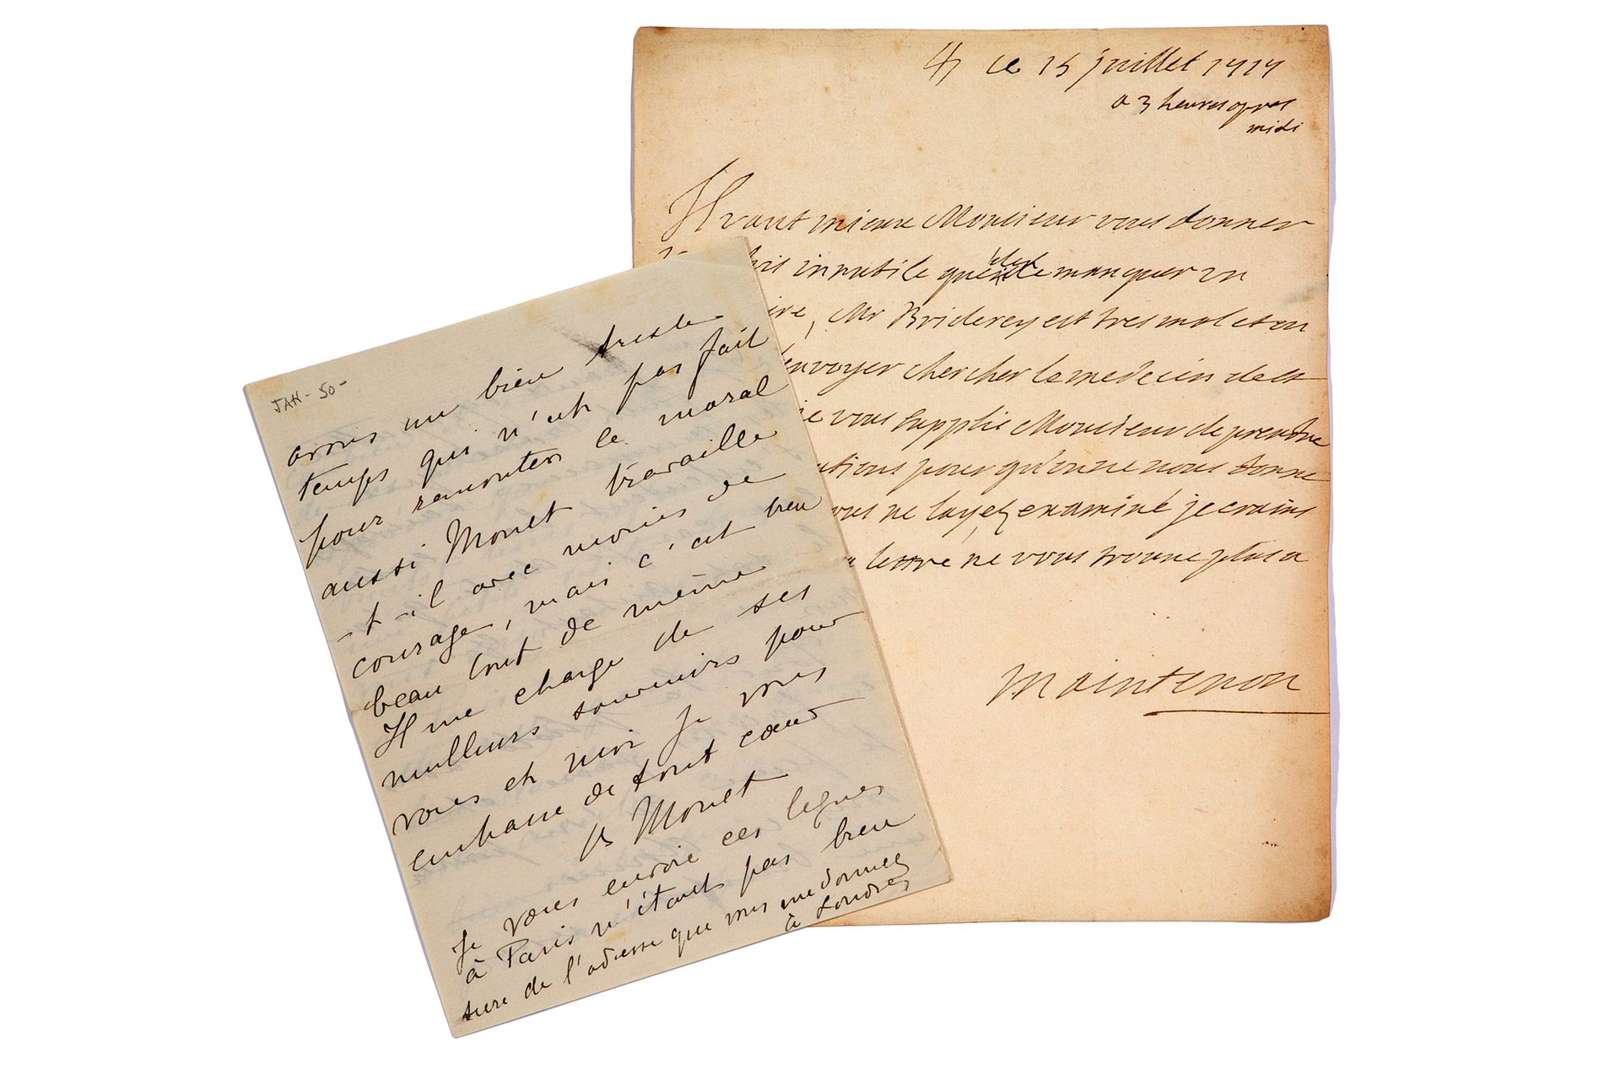 JAH - 50 -
avons un bien triste
temps qui n'est pas fait
pour remonter le moral
aussi Monet travaille
-t-il avec moins de
courage, mais c'est bien
beau tout de même
Il me charge de ses
meilleurs souvenirs pour
vous et moi je vous
embrasse de tout cœur
Monet
Je vous envoie ces lignes
à Paris n'étant pas bien
sure de l'adresse que vous me donnez
à Londres
ce 15 juillet 1717
a 3 heures apres
midi
Il vaut mieux Monsieur vous donner
innutile que de manquer un
ire, Mr Briderey est tres mal et on
envoyer chercher le medecin de
je vous supplie Monsieur de prendre
utions pour qu'on ne nous donne
vous ne layez examiné je crains
lettre ne vous trouve plus a
Maintenon